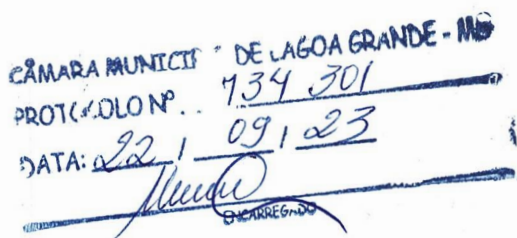 CÂMARA MUNICIP DE LAGOA GRANDE - MG
PROTOCOLO Nº.. 134 301
DATA: 22 / 09 / 23
ENCARREGADO